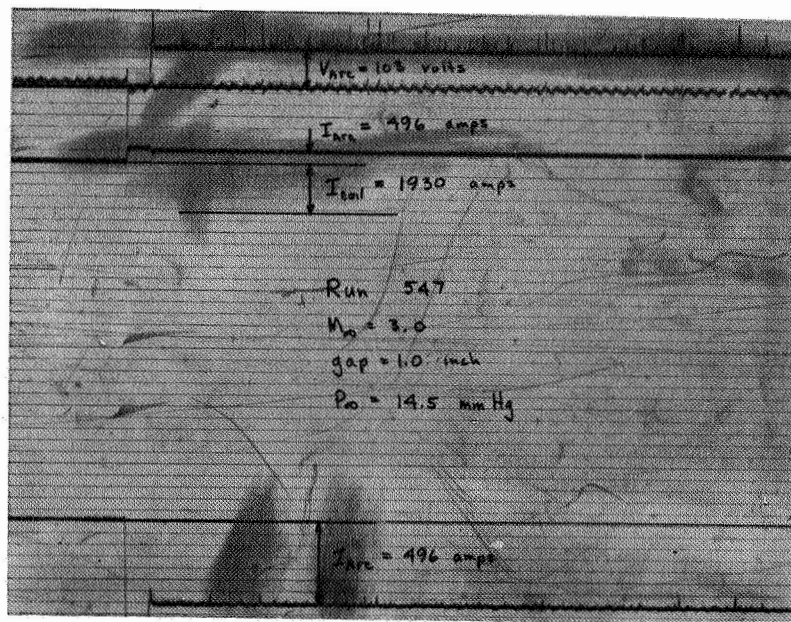 V_Arc = 108 volts
I_Arc = 496 amps
I_coil = 1930 amps
Run 547
M∞ = 3.0
gap = 1.0 inch
P∞ = 14.5 mm Hg
I_Arc = 496 amps